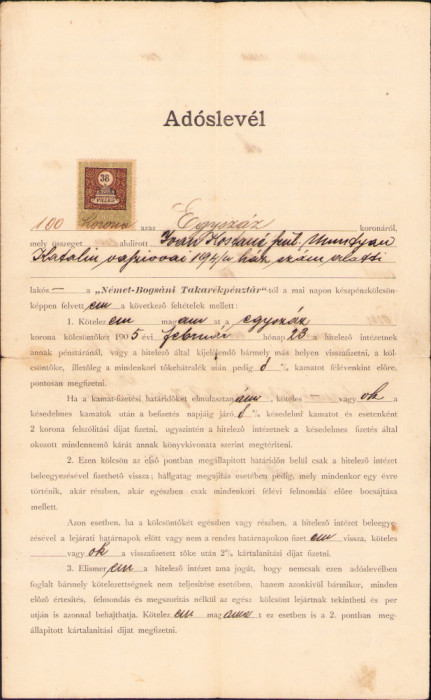 Adóslevél
38
FILLÉR
100 Korona azaz Egyszáz koronáról,
mely összeget alulirott Ivan Kosztané szül. Mundyan
Katalin vassiovai 194/a ház szám alatti
lakós — a „Német-Bogsáni Takarékpénztár"-tól a mai napon készpénzkölcsön-
képpen felvett em a következő feltételek mellett :
1. Kötelez em magam at a egyszáz
korona kölcsöntőkét 1905 évi február hónap 23 a hitelező intézetnek
annak pénztáránál, vagy a hitelező által kijelölendő bármely más helyen visszafizetni, a köl-
csöntőke, illetőleg a mindenkori tőkehátralék után pedig 8 % kamatot félévenként előre,
pontosan megfizetni.
Ha a kamat-fizetési határidőket elmulasztanám, köteles — vagy ok a
késedelmes kamatok után a befizetés napjáig járó, 8 % késedelmi kamatot és esetenként
2 korona felszólitási dijat fizetni, ugyszintén a hitelező intézetnek a késedelmes fizetés által
okozott mindennemő kárát annak könyvkivonata szerint megtériteni.
2. Ezen kölcsön az első pontban megállapitott határidőn belül csak a hitelező intézet
beleegyezésével fizethető vissza ; hallgatag megujitás esetében pedig, mely mindenkor egy évre
történik, akár részben, akár egészben csak mindenkori félévi felmondás előre bocsájtása
mellett.
Azon esetben, ha a kölcsöntőkét egészben vagy részben, a hitelező intézet beleegye-
zésével a lejárati határnapok előtt vagy nem a rendes határnapokon fizet em vissza, köteles
vagy ok a visszafizetett tőke után 2% kártalanitási dijat fizetni.
3. Elismer em a hitelező intézet ama jogát, hogy nemcsak ezen adóslevélben
foglalt bármely kötelezettségnek nem teljesitése esetében, hanem azonkivül bármikor, minden
előző értesités, felmondás és megszoritás nélkül az egész kölcsönt lejártnak tekintheti és per
utján is azonnal behajthatja. Kötelez em magamat ez esetben is a 2. pontban meg-
állapitott kártalanitási dijat megfizetni.